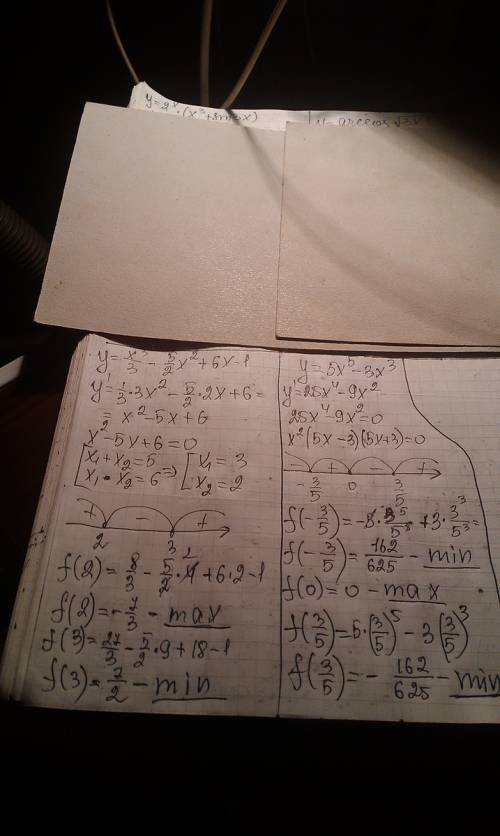 y = 2ˣ · (x³ +
y = arccos √3x
y = x³/3 - 5/2 x² + 6x - 1
y' = 1/3 · 3x² - 5/2 · 2x + 6 =
= x² - 5x + 6
x² - 5x + 6 = 0
[x₁ + x₂ = 5
x₁ · x₂ = 6 ⇒ [x₁ = 3
x₂ = 2
+ - +
2 3
f(2) = 8/3 - 5/2 · 4 + 6 · 2 - 1
f(2) = 7/3 - max
f(3) = 27/3 - 5/2 · 9 + 18 - 1
f(3) = 7/2 - min
y = 5x⁵ - 3x³
y' = 25x⁴ - 9x²
25x⁴ - 9x² = 0
x² (5x - 3)(5x + 3) = 0
- + - +
-3/5 0 3/5
f(-3/5) = -5 · 3⁵/5⁵ + 3 · 3³/5³ =
f(-3/5) = 162/625 - min
f(0) = 0 - max
f(3/5) = 5 · (3/5)⁵ - 3(3/5)³
f(3/5) = - 162/625 - min